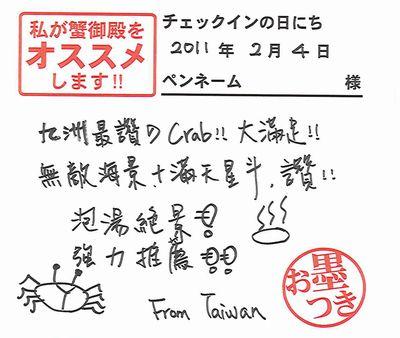 私が蟹御殿を
オススメ
します!!
チェックインの日にち
2011 年 2 月 4 日
ペンネーム 様
九洲最讚のCrab!! 大滿足!!
無敵海景+滿天星斗,讚!!
泡湯絕景!
強力推薦!!
From Taiwan
お墨つき